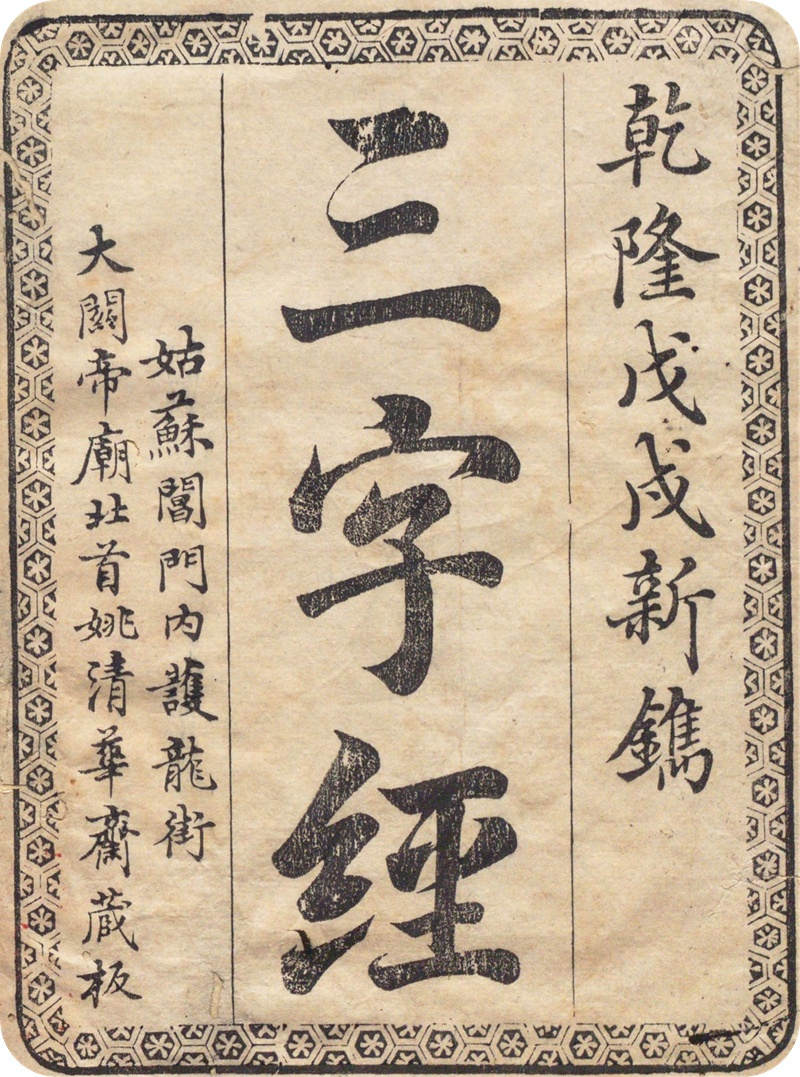 乾隆戊戌新鐫
三字經
姑蘇閶門内護龍街
大關帝廟北首姚清華齋藏板